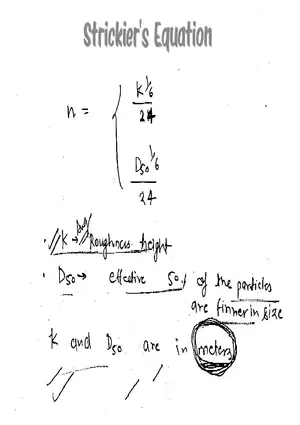 Strickier's Equation
n =
K^1/6
24
D50^1/6
24
K → Roughness height
D50 → effective 50% of the particles
are finner in size
K and D50 are in meters